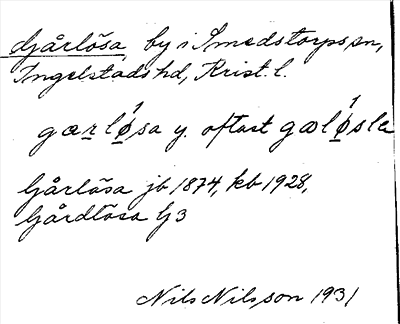 Gårlösa by i Smedstorps sn,
Ingelstads hd, Krist. l.
gærlǿsa y. oftast gælǿsla
Gårlösa jb 1874, kb 1928,
Gårdlösa G 3
Nils Nilsson 1931